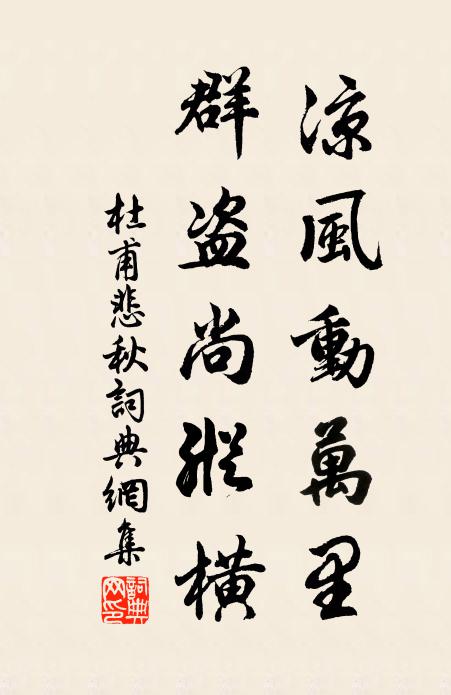 涼風動萬里
群盜尚縱橫
杜甫悲秋詞典網集
詞典
网印